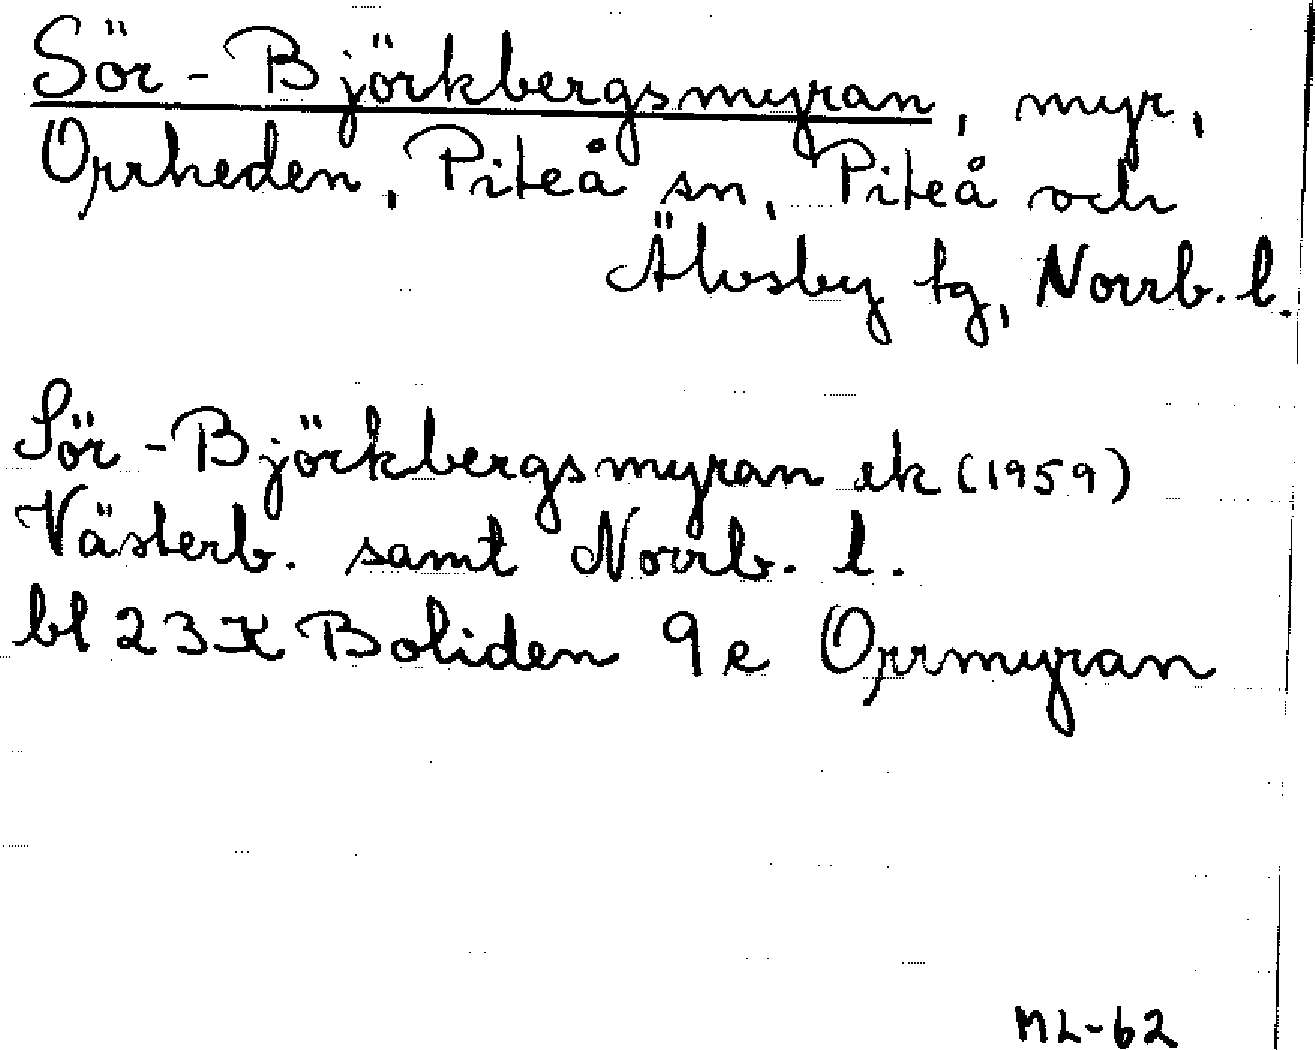 Sör-Björkbergsmyran, myr,
Orrheden, Piteå sn, Piteå och
Älvsby tg, Norrb. l.
Sör-Björkbergsmyran ek (1959)
Västerb. samt Norrb. l.
bl 23K Boliden 9e Orrmyran
ML-62